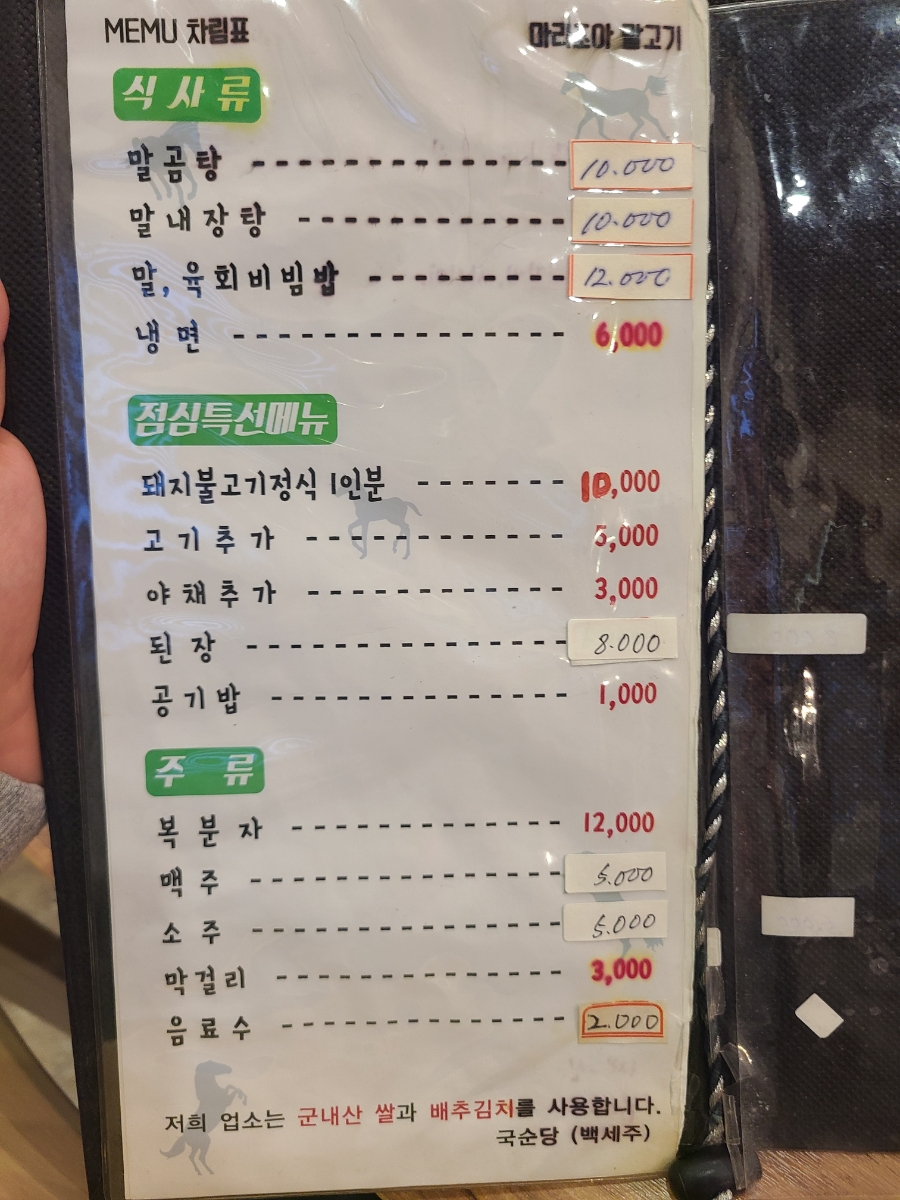 MEMU 차림표 마리조아 말고기
식 사 류
말곰탕 10.000
말내장탕 10.000
말, 육회비빔밥 12.000
냉 면 6,000
점심특선메뉴
돼지불고기정식 1인분 10,000
고기추가 5,000
야채추가 3,000
된 장 8.000
공기밥 1,000
주 류
복 분 자 12,000
맥 주 5.000
소 주 5.000
막걸리 3,000
음료수 2.000
저희 업소는 군내산 쌀과 배추김치를 사용합니다.
국순당 (백세주)